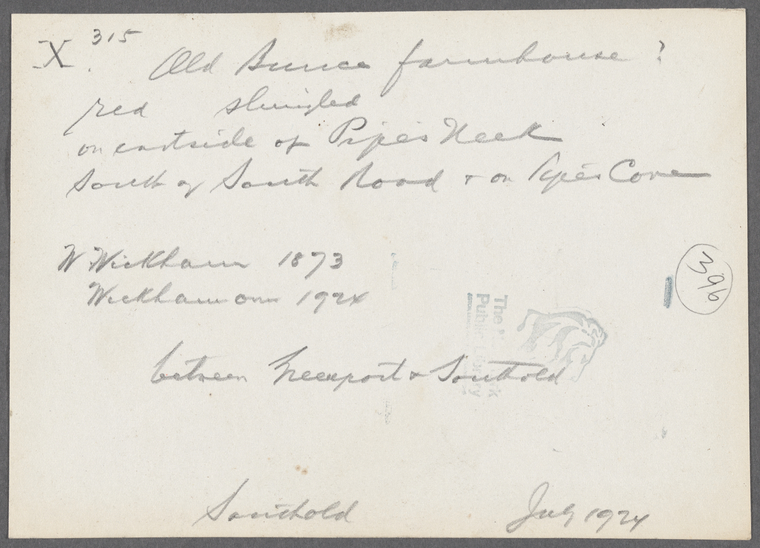 X. 315
Old Bunce farmhouse?
red shingled
on eastside of Pipes Neck
South of South Road & on Pipes Cove
W Wickham 1873
Wickham own 1924
396
The
Public Library
between Greenport & Southold
Southold July 1924